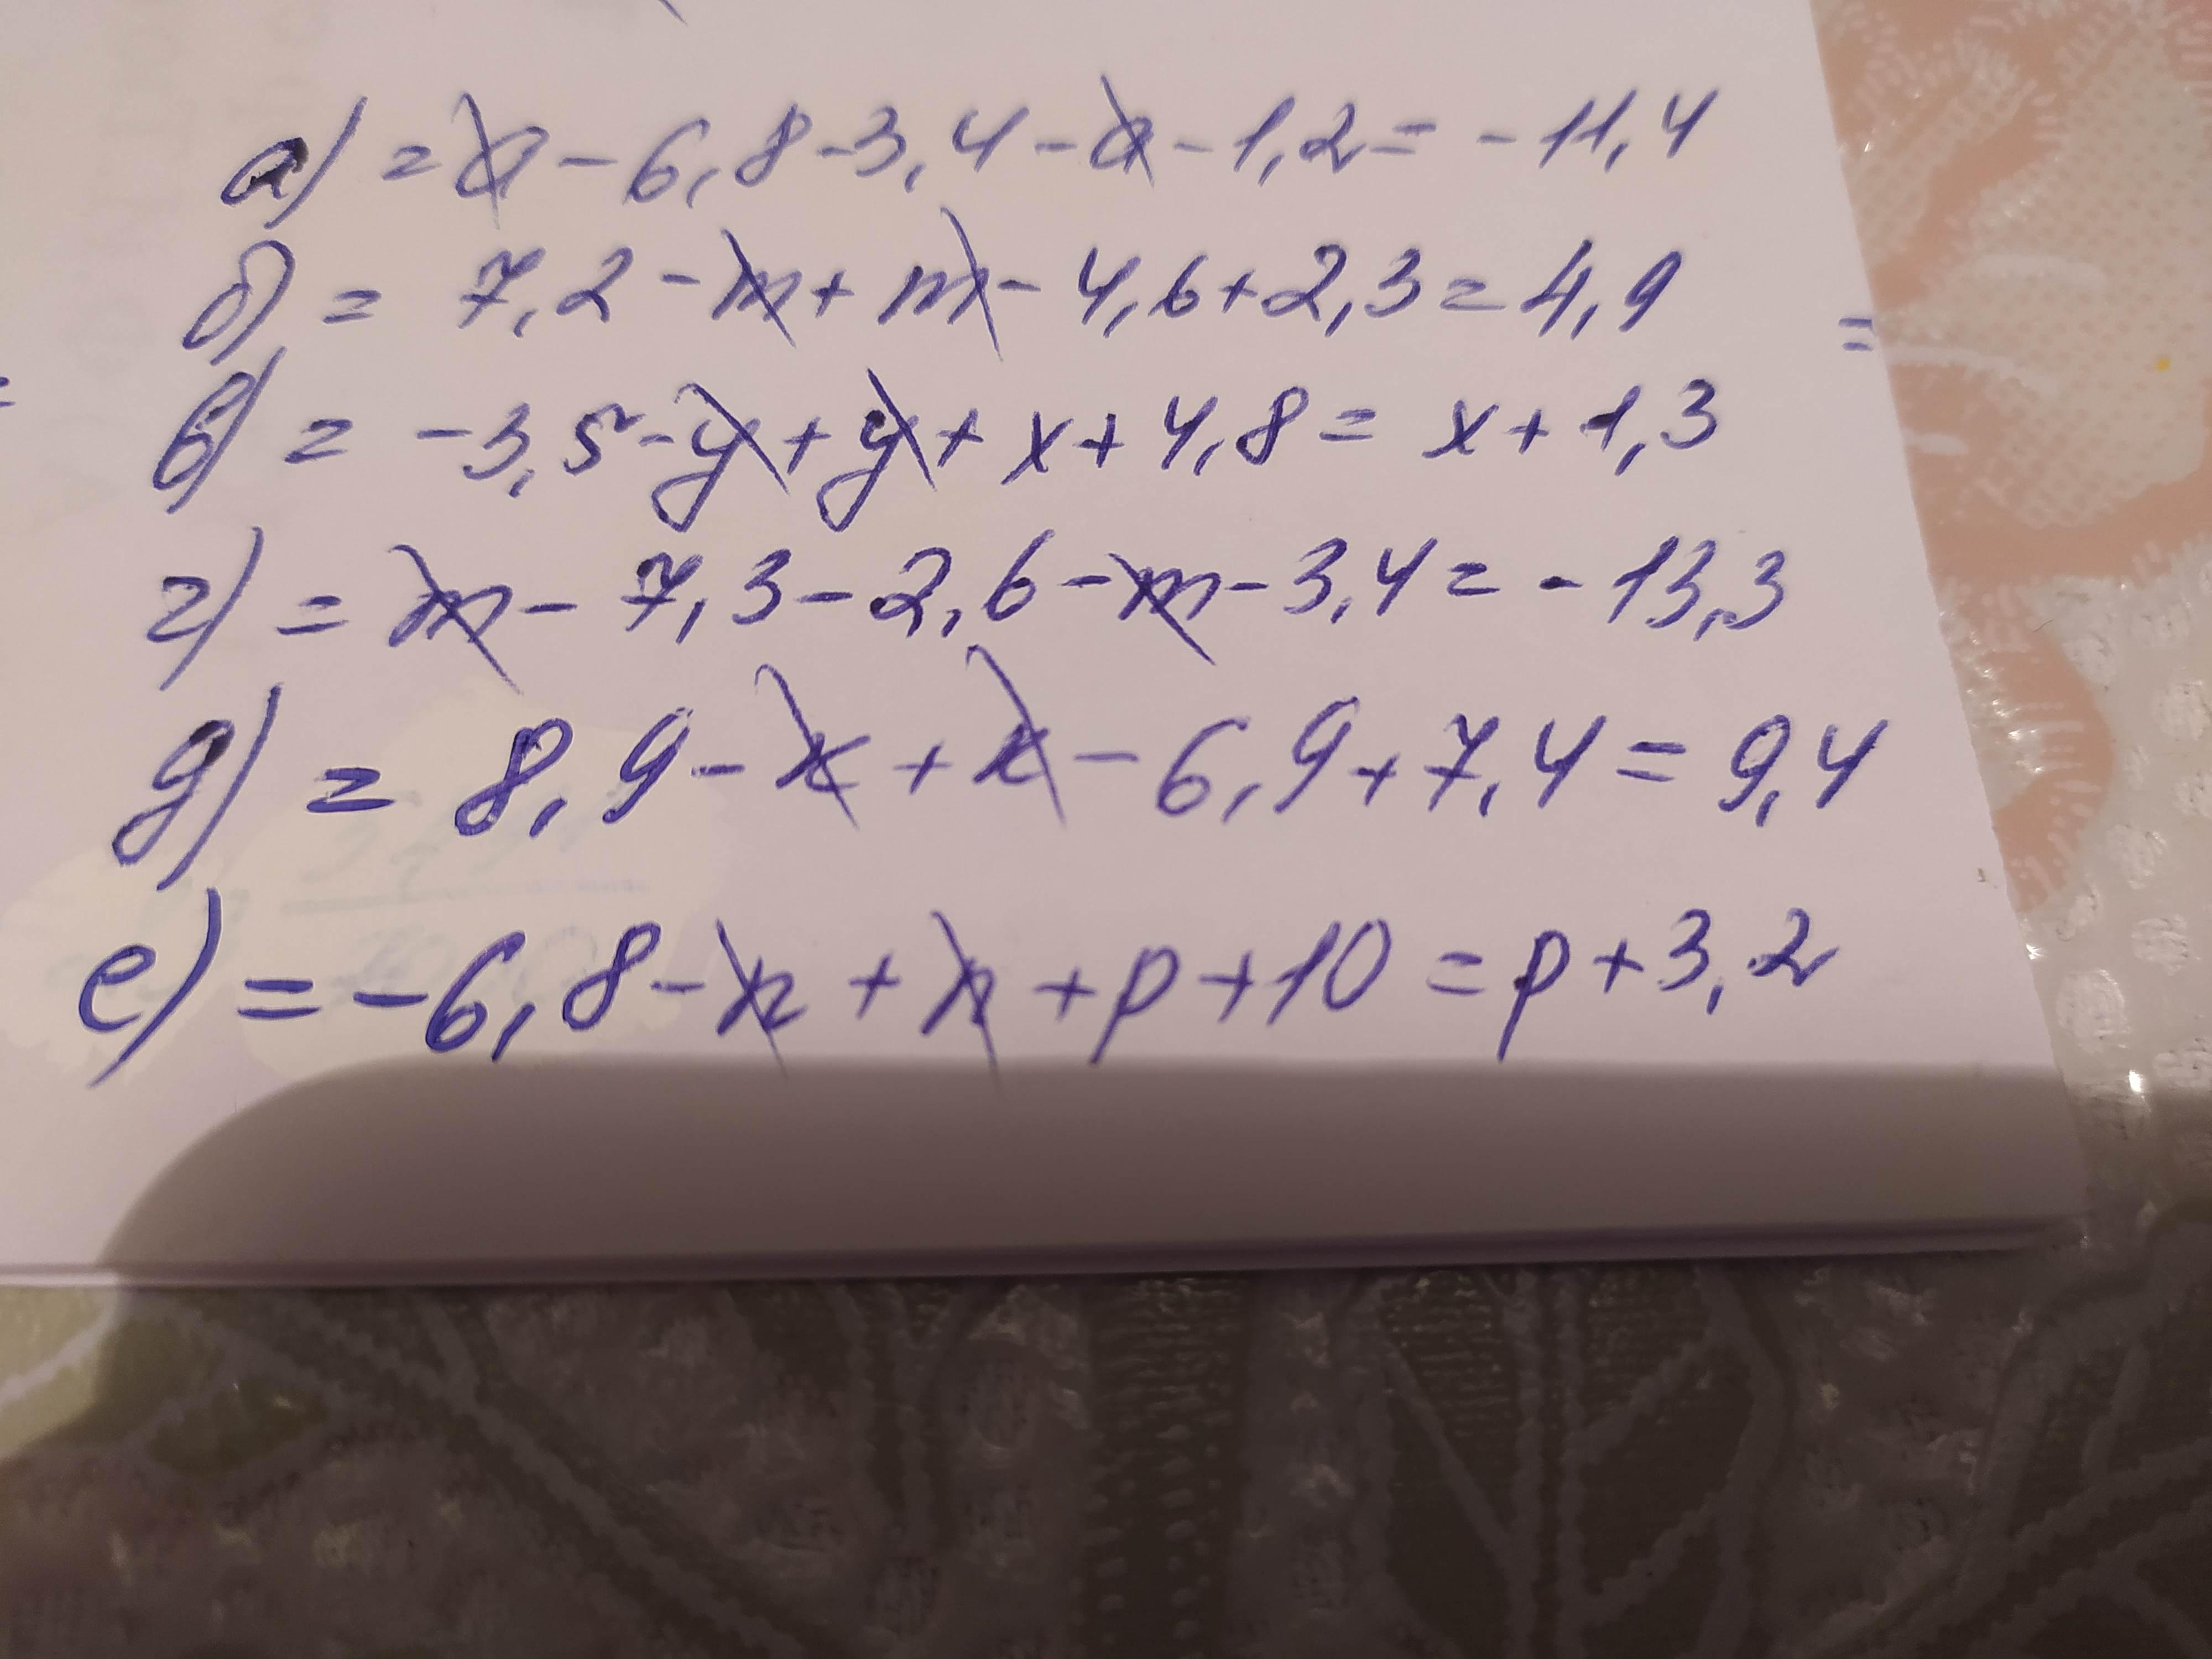 а) = a - 6,8 - 3,4 - a - 1,2 = - 11,4
б) = 7,2 - m + m - 4,6 + 2,3 = 4,9
=
в) = - 3,5 - y + y + x + 4,8 = x + 1,3
г) = m - 7,3 - 2,6 - m - 3,4 = - 13,3
д) = 8,9 - x + x - 6,9 + 7,4 = 9,4
е) = - 6,8 - n + n + p + 10 = p + 3,2